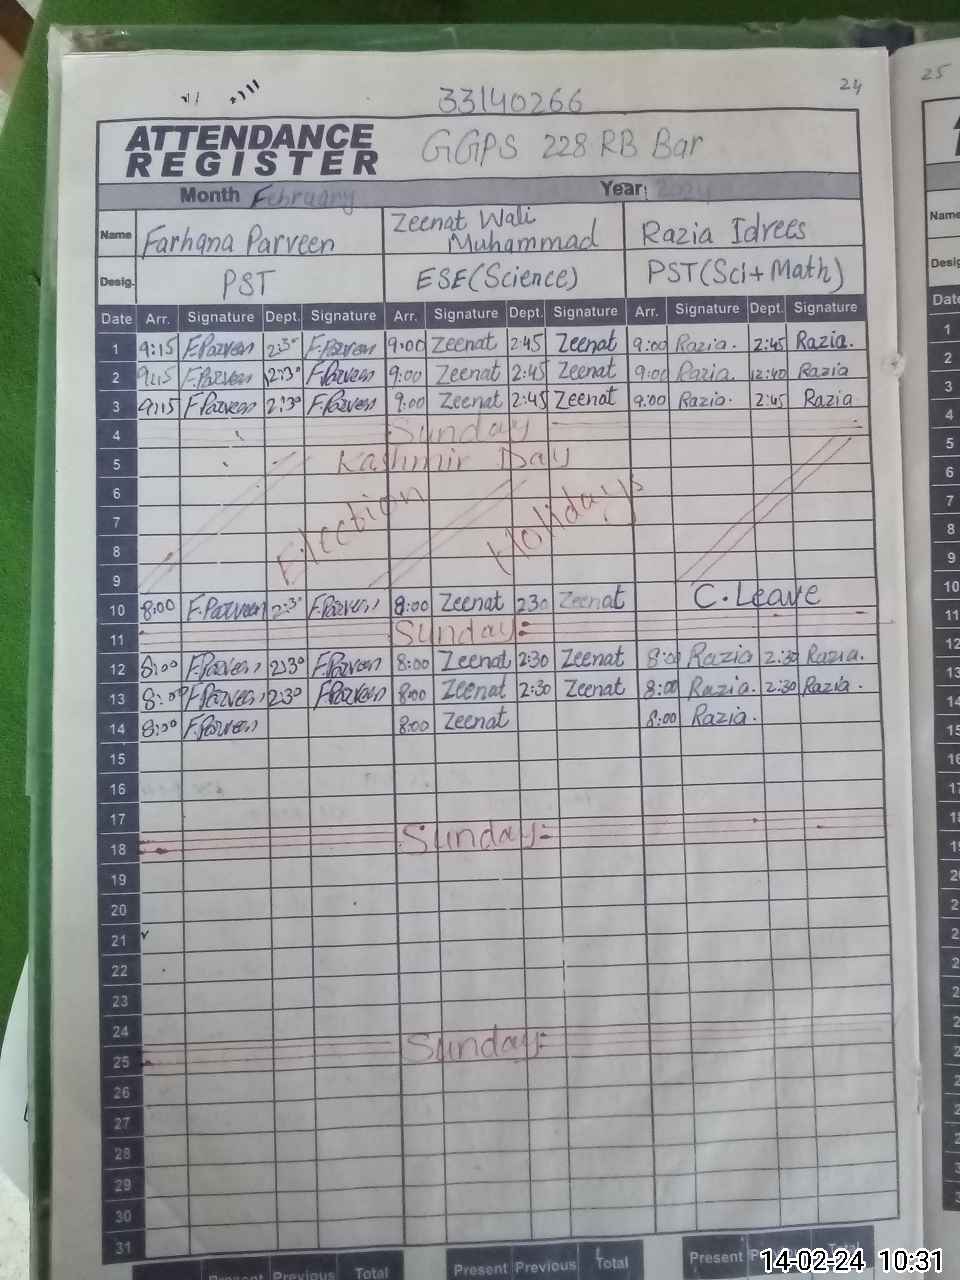 24
25
33140266
ATTENDANCE REGISTER GGPS 228 RB Bar
Month February Year: 2024
Name Farhana Parveen Zeenat Wali Muhammad Razia Idrees
Name
Desig. PST ESE(Science) PST(Sci+Math)
Date Arr. Signature Dept. Signature Arr. Signature Dept. Signature Arr. Signature Dept. Signature
Date
1 9:15 F.Parveen 2:30 F.Parveen 9:00 Zeenat 2:45 Zeenat 9:00 Razia. 2:45 Razia.
2 9:15 F.Parveen 2:30 F.Parveen 9:00 Zeenat 2:45 Zeenat 9:00 Razia. 12:40 Razia
3 9:15 F.Parveen 2:30 F.Parveen 9:00 Zeenat 2:45 Zeenat 9:00 Razia. 2:45 Razia
4 Sunday
5 Kashmir Day
6 Election Holidays
7
8
9
10 8:00 F.Parveen 2:30 F.Parveen 8:00 Zeenat 230 Zeenat C.Leave
11 Sunday:
12 8:00 F.Parveen 2:30 F.Parveen 8:00 Zeenat 2:30 Zeenat 8:00 Razia 2:30 Razia.
13 8:00 F.Parveen 2:30 F.Parveen 8:00 Zeenat 2:30 Zeenat 8:00 Razia. 2:30 Razia.
14 8:00 F.Parveen 8:00 Zeenat 8:00 Razia.
15
16
17
18 Sunday:
19
20
21
22
23
24
25 Sunday:
26
27
28
29
30
31
Present Previous Total Present Previous Total Present
14-02-24 10:31